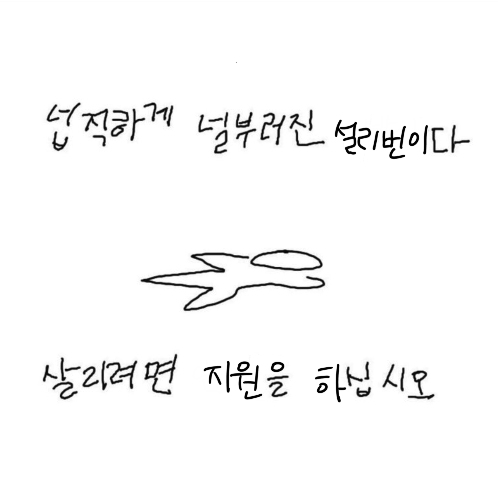 넙적하게 널부러진 설리번이다
살리려면 지원을 하십시오